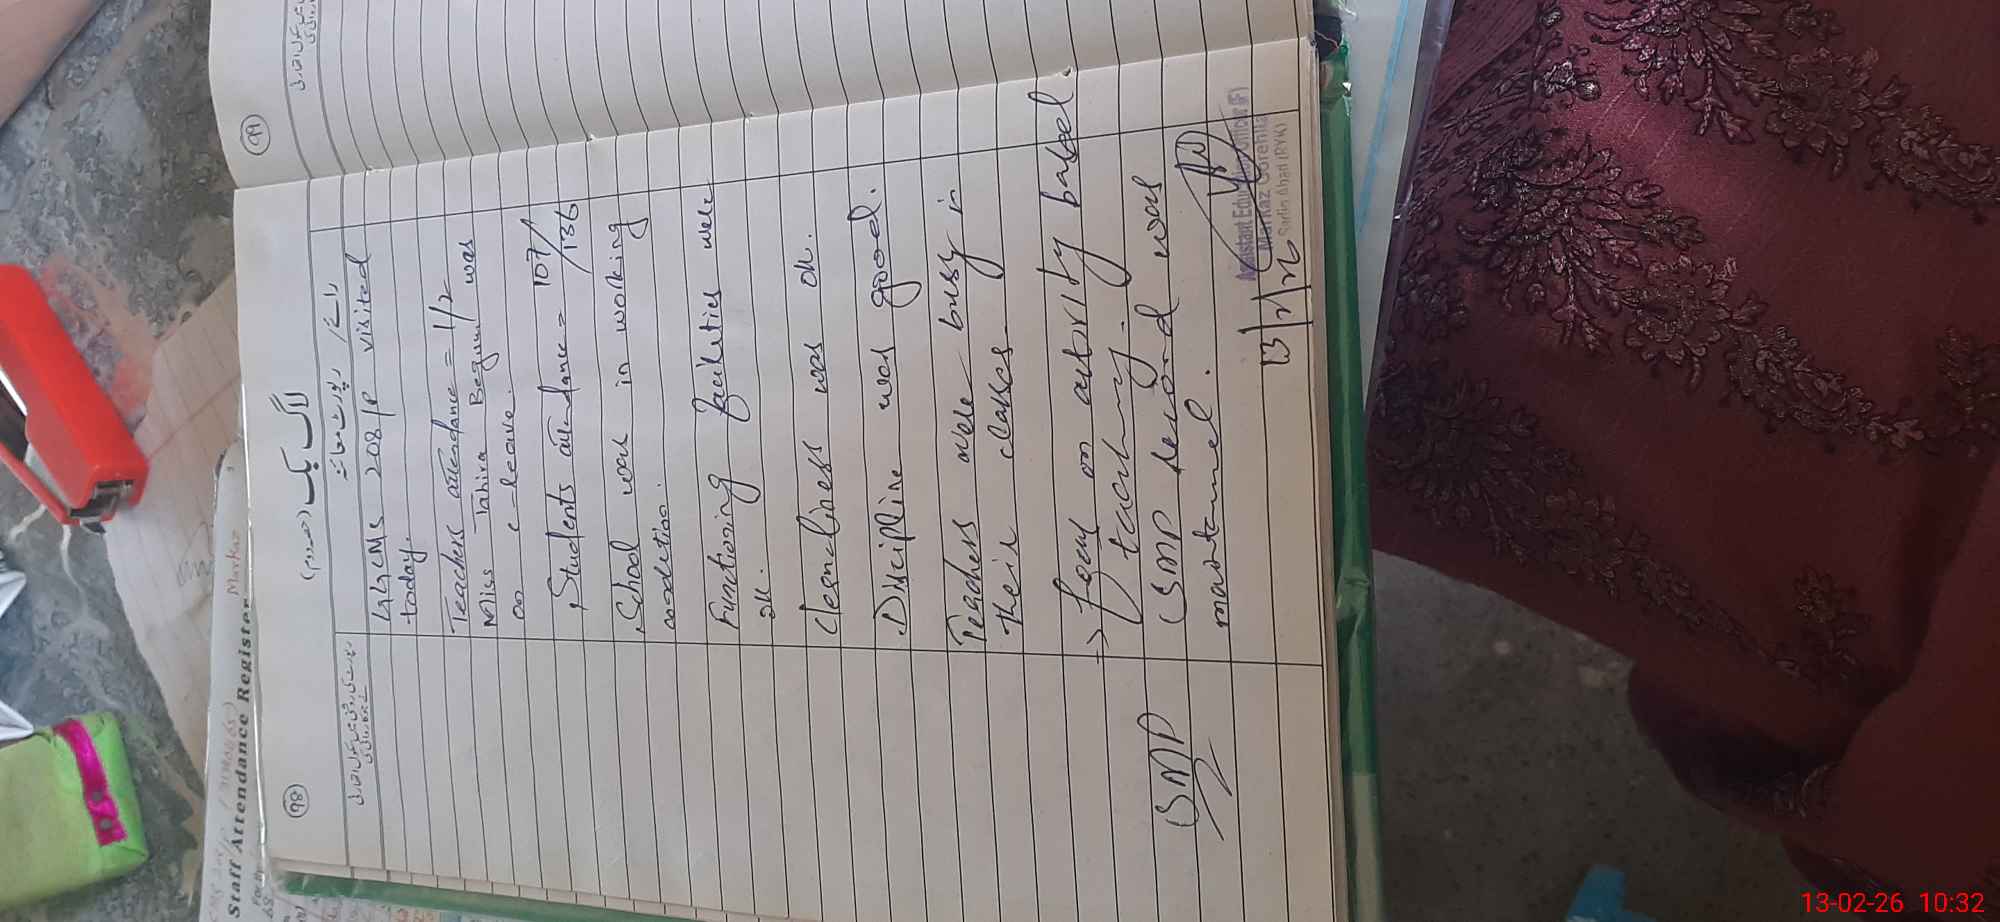 98
لاگ بک (حصہ دوم)
رائے / رپورٹ معائنہ
GGCMS 208/P visited
today.
Teachers attendance = 1/2
Miss Tahira Begum was
on c-leave.
Students attendance = 107/136
School was in working
condition.
Functioning facilities were
ok.
cleanliness was ok.
Discipline was good.
Teachers were busy in
their classes.
→ focus on activity based
teaching.
SMP record was
maintained.
SMP
13/2/26
Assistant Education Officer (F)
Markaz
Sadiq Abad (RYK)
99
Staff Attendance Register
Markaz
13-02-26 10:32